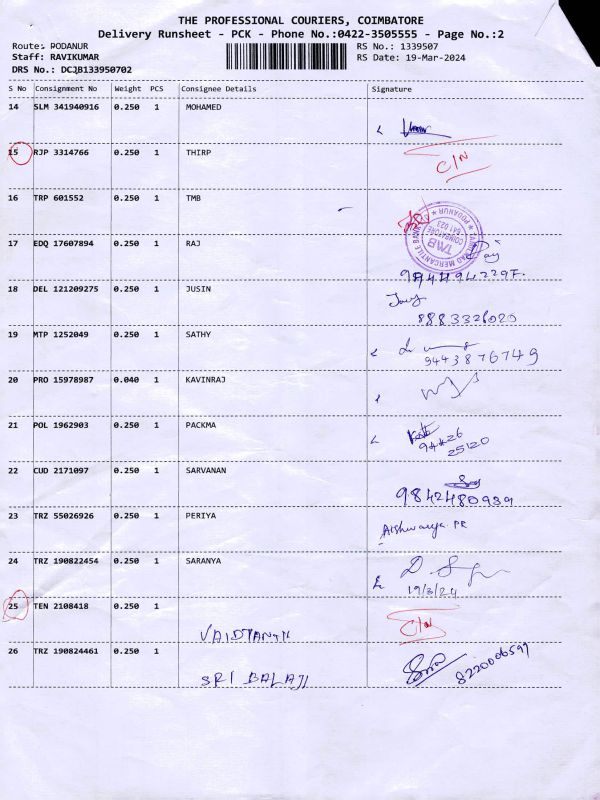 THE PROFESSIONAL COURIERS, COIMBATORE
Delivery Runsheet - PCK - Phone No.:0422-3505555 - Page No.:2
Route: PODANUR
RS No.: 1339507
Staff: RAVIKUMAR
RS Date: 19-Mar-2024
DRS No.: DCJB133950702
S No Consignment No Weight PCS Consignee Details Signature
14 SLM 341940916 0.250 1 MOHAMED
15 RJP 3314766 0.250 1 THIRP C/N
16 TRP 601552 0.250 1 TMB
TAMILNAD MERCANTILE BANK PODANUR
TMB
COIMBATORE
641 023
17 EDQ 17607894 0.250 1 RAJ Raj
18 DEL 121209275 0.250 1 JUSIN
8883326020
19 MTP 1252049 0.250 1 SATHY
9443876749
20 PRO 15978987 0.040 1 KAVINRAJ
21 POL 1962903 0.250 1 PACKMA
25120
22 CUD 2171097 0.250 1 SARVANAN
9842480939
23 TRZ 55026926 0.250 1 PERIYA Aishwarya PR
24 TRZ 190822454 0.250 1 SARANYA
19/3/24
25 TEN 2108418 0.250 1 C/N
VAIDYANTH
26 TRZ 190824461 0.250 1
8220006597
SRI BALAJI